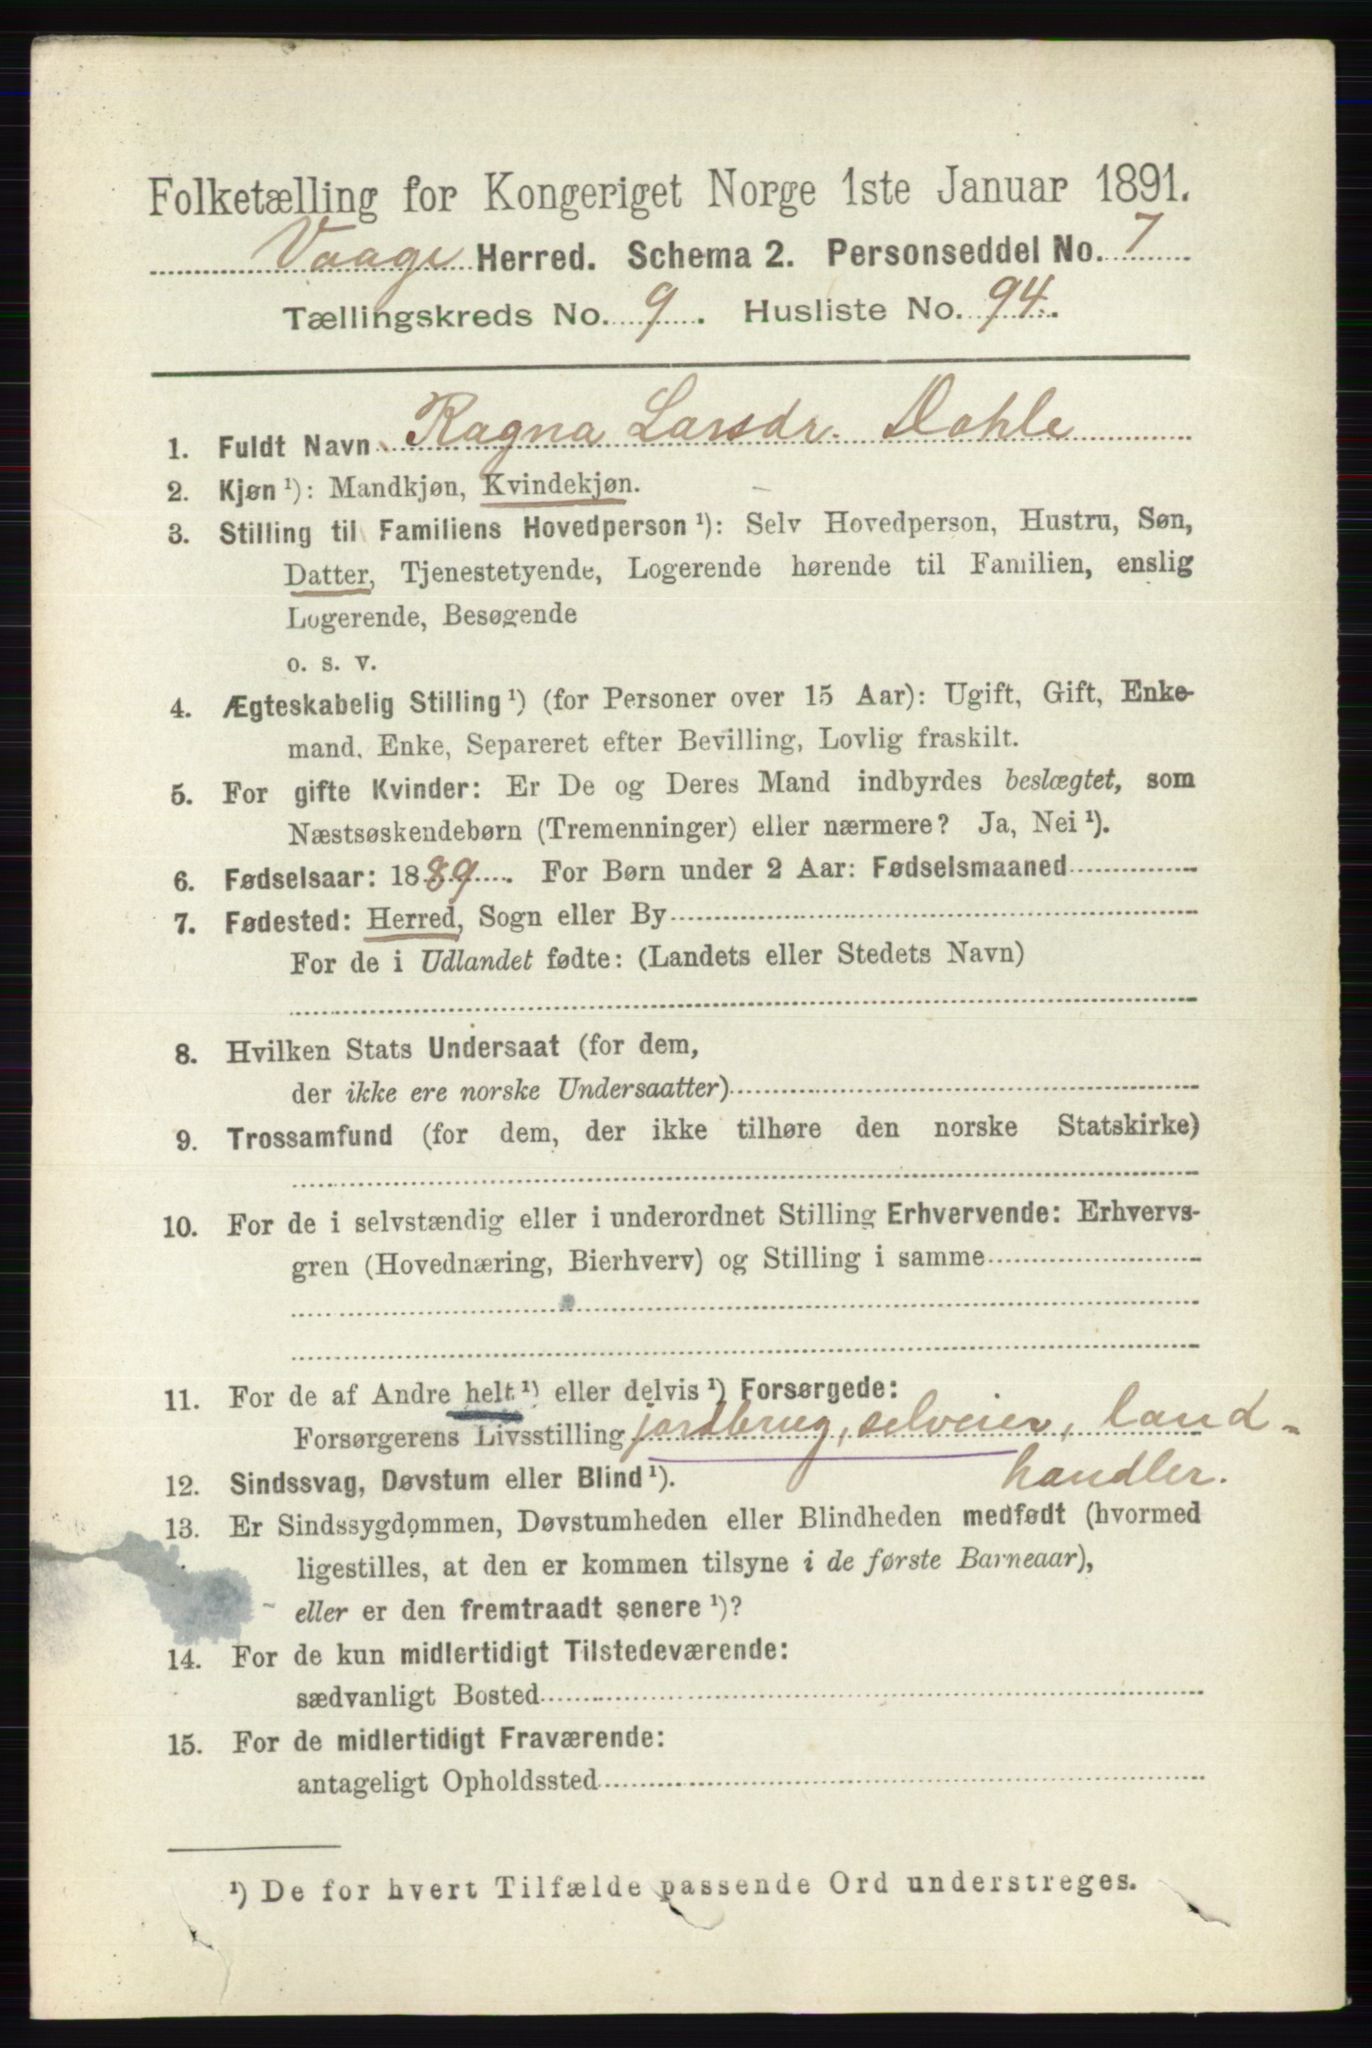 Folketælling for Kongeriget Norge 1ste Januar 1891.
Vaage Herred. Schema 2. Personseddel No. 7
Tællingskreds No. 9. Husliste No. 94.
1. Fuldt Navn Ragna Larsdr. Dahle
2. Kjøn ¹): Mandkjøn, Kvindekjøn.
3. Stilling til Familiens Hovedperson ¹): Selv Hovedperson, Hustru, Søn,
Datter, Tjenestetyende, Logerende hørende til Familien, enslig
Logerende, Besøgende
o. s. v.
4. Ægteskabelig Stilling ¹) (for Personer over 15 Aar): Ugift, Gift, Enke-
mand, Enke, Separeret efter Bevilling, Lovlig fraskilt.
5. For gifte Kvinder: Er De og Deres Mand indbyrdes beslægtet, som
Næstsøskendebørn (Tremenninger) eller nærmere? Ja, Nei ¹).
6. Fødselsaar: 1889. For Børn under 2 Aar: Fødselsmaaned
7. Fødested: Herred, Sogn eller By
For de i Udlandet fødte: (Landets eller Stedets Navn)
8. Hvilken Stats Undersaat (for dem,
der ikke ere norske Undersaatter)
9. Trossamfund (for dem, der ikke tilhøre den norske Statskirke)
10. For de i selvstændig eller i underordnet Stilling Erhvervende: Erhvervs-
gren (Hovednæring, Bierhverv) og Stilling i samme
11. For de af Andre helt ¹) eller delvis ¹) Forsørgede:
Forsørgerens Livsstilling jordbrug, selveier, land-
handler.
12. Sindssvag, Døvstum eller Blind ¹).
13. Er Sindssygdommen, Døvstumheden eller Blindheden medfødt (hvormed
ligestilles, at den er kommen tilsyne i de første Barneaar),
eller er den fremtraadt senere ¹)?
14. For de kun midlertidigt Tilstedeværende:
sædvanligt Bosted
15. For de midlertidigt Fraværende:
antageligt Opholdssted
¹) De for hvert Tilfælde passende Ord understreges.